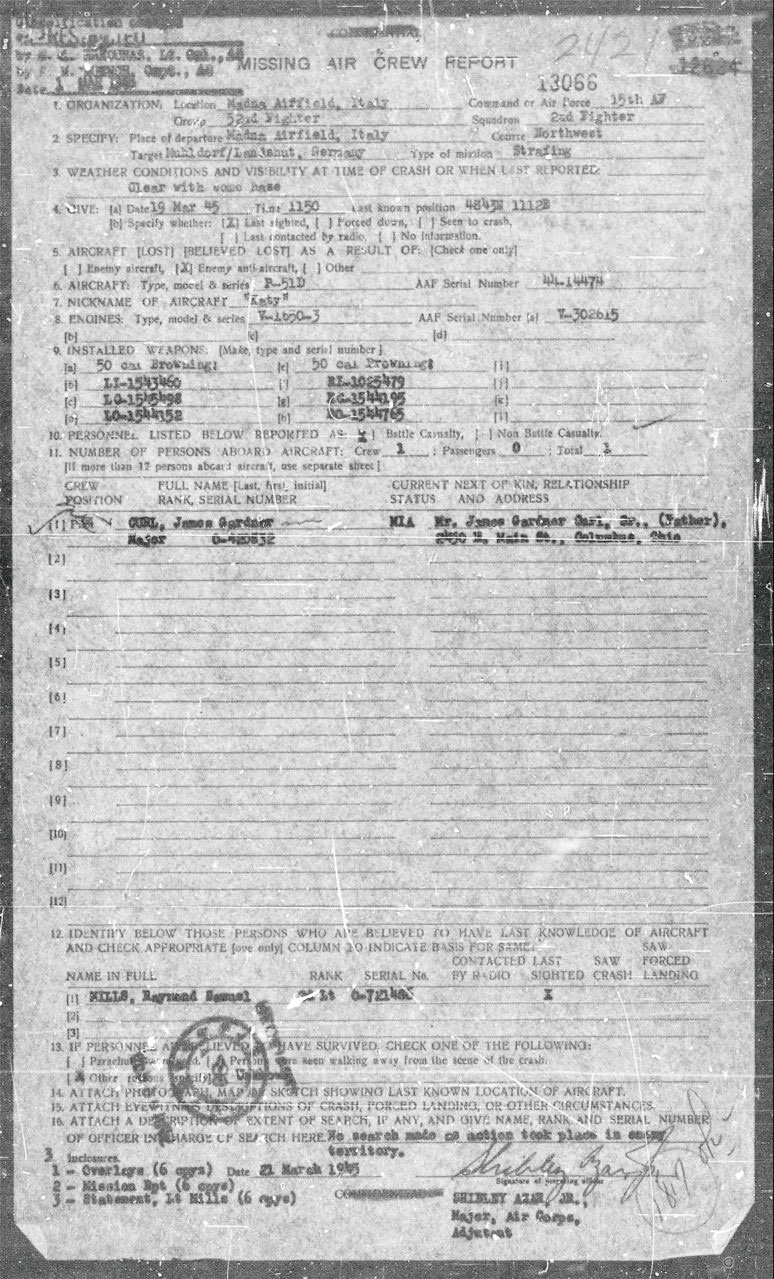 Classification
CONFIDENTIAL
2421
MISSING AIR CREW REPORT
13066
1. ORGANIZATION: Location Madna Airfield, Italy Command or Air Force 15th AF
Group 52nd Fighter Squadron 2nd Fighter
2 SPECIFY: Place of departure Madna Airfield, Italy Course Northwest
Target Muhldorf/Landshut, Germany Type of mission Strafing
3. WEATHER CONDITIONS AND VISIBILITY AT TIME OF CRASH OR WHEN LAST REPORTED:
Clear with some haze
4. GIVE: [a] Date 19 Mar 45 Time 1150 Last known position 4843N 1112E
[b] Specify whether: [X] Last sighted, [ ] Forced down, [ ] Seen to crash,
[ ] Last contacted by radio, [ ] No Information.
5. AIRCRAFT [LOST] [BELIEVED LOST] AS A RESULT OF: [Check one only]
[ ] Enemy aircraft, [X] Enemy anti-aircraft, [ ] Other
6. AIRCRAFT: Type, model & series P-51D AAF Serial Number 44-14474
7. NICKNAME OF AIRCRAFT "Katy"
8. ENGINES: Type, model & series V-1650-3 AAF Serial Number [a] V-302615
[b] [c] [d]
9. INSTALLED WEAPONS: [Make, type and serial number]
[a] 50 cal Browning: [e] 50 cal Browning: [i]
[b] LI-1543460 [f] 1025479 [j]
[c] LO-1545498 [g] 1544195 [k]
[d] LO-1544152 [h] 1544765 [l]
10. PERSONNEL LISTED BELOW REPORTED AS: [X] Battle Casualty, [ ] Non Battle Casualty.
11. NUMBER OF PERSONS ABOARD AIRCRAFT: Crew 1 ; Passengers 0 ; Total 1
[If more than 12 persons aboard aircraft, use separate sheet]
CREW FULL NAME [Last, first, initial] CURRENT NEXT OF KIN, RELATIONSHIP
POSITION RANK, SERIAL NUMBER STATUS AND ADDRESS
[1] CURL, James Gardner MIA Mr. James Gardner Curl, Sr., (Father),
Major Main St., Columbus, Ohio
[2]
[3]
[4]
[5]
[6]
[7]
[8]
[9]
[10]
[11]
[12]
12. IDENTIFY BELOW THOSE PERSONS WHO ARE BELIEVED TO HAVE LAST KNOWLEDGE OF AIRCRAFT
AND CHECK APPROPRIATE [one only] COLUMN TO INDICATE BASIS FOR SAME: SAW
CONTACTED LAST SAW FORCED
NAME IN FULL RANK SERIAL No. BY RADIO SIGHTED CRASH LANDING
[1] MILLS, Raymond Samuel Lt X
[2]
[3]
13. IF PERSONNEL ARE BELIEVED TO HAVE SURVIVED, CHECK ONE OF THE FOLLOWING:
[ ] Parachutes were used, [ ] Persons were seen walking away from the scene of the crash.
[X] Other reasons [specify] Unknown
14. ATTACH PHOTOGRAPH, MAP OR SKETCH SHOWING LAST KNOWN LOCATION OF AIRCRAFT.
15. ATTACH EYEWITNESS DESCRIPTIONS OF CRASH, FORCED LANDING, OR OTHER CIRCUMSTANCES.
16. ATTACH A DESCRIPTION OF EXTENT OF SEARCH, IF ANY, AND GIVE NAME, RANK AND SERIAL NUMBER
OF OFFICER IN CHARGE OF SEARCH HERE. No search made as action took place in enemy
territory.
3 Inclosures.
1 - Overlays (6 cpys) Date 21 March 1945
2 - Mission Rpt (6 cpys) Signature of reporting officer
3 - Statement, Lt Mills (6 cpys) CONFIDENTIAL SHIBLEY AZAR, JR.,
Major, Air Corps,
Adjutant